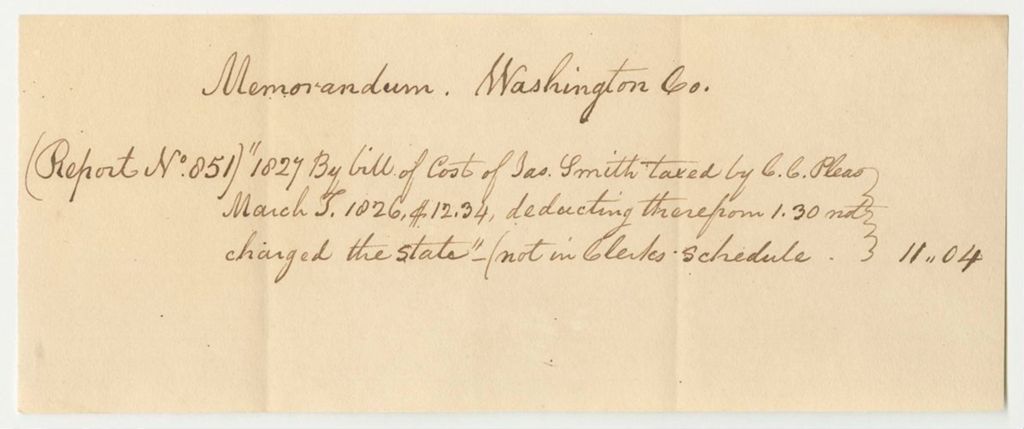 Memorandum. Washington Co.
(Report No. 851) "1827 By bill of Cost of Jas. Smith taxed by C. C. Pleas
March T. 1826, $12.34, deducting therefrom 1.30 not
charged the state" - (not in Clerks schedule. 11.. 04